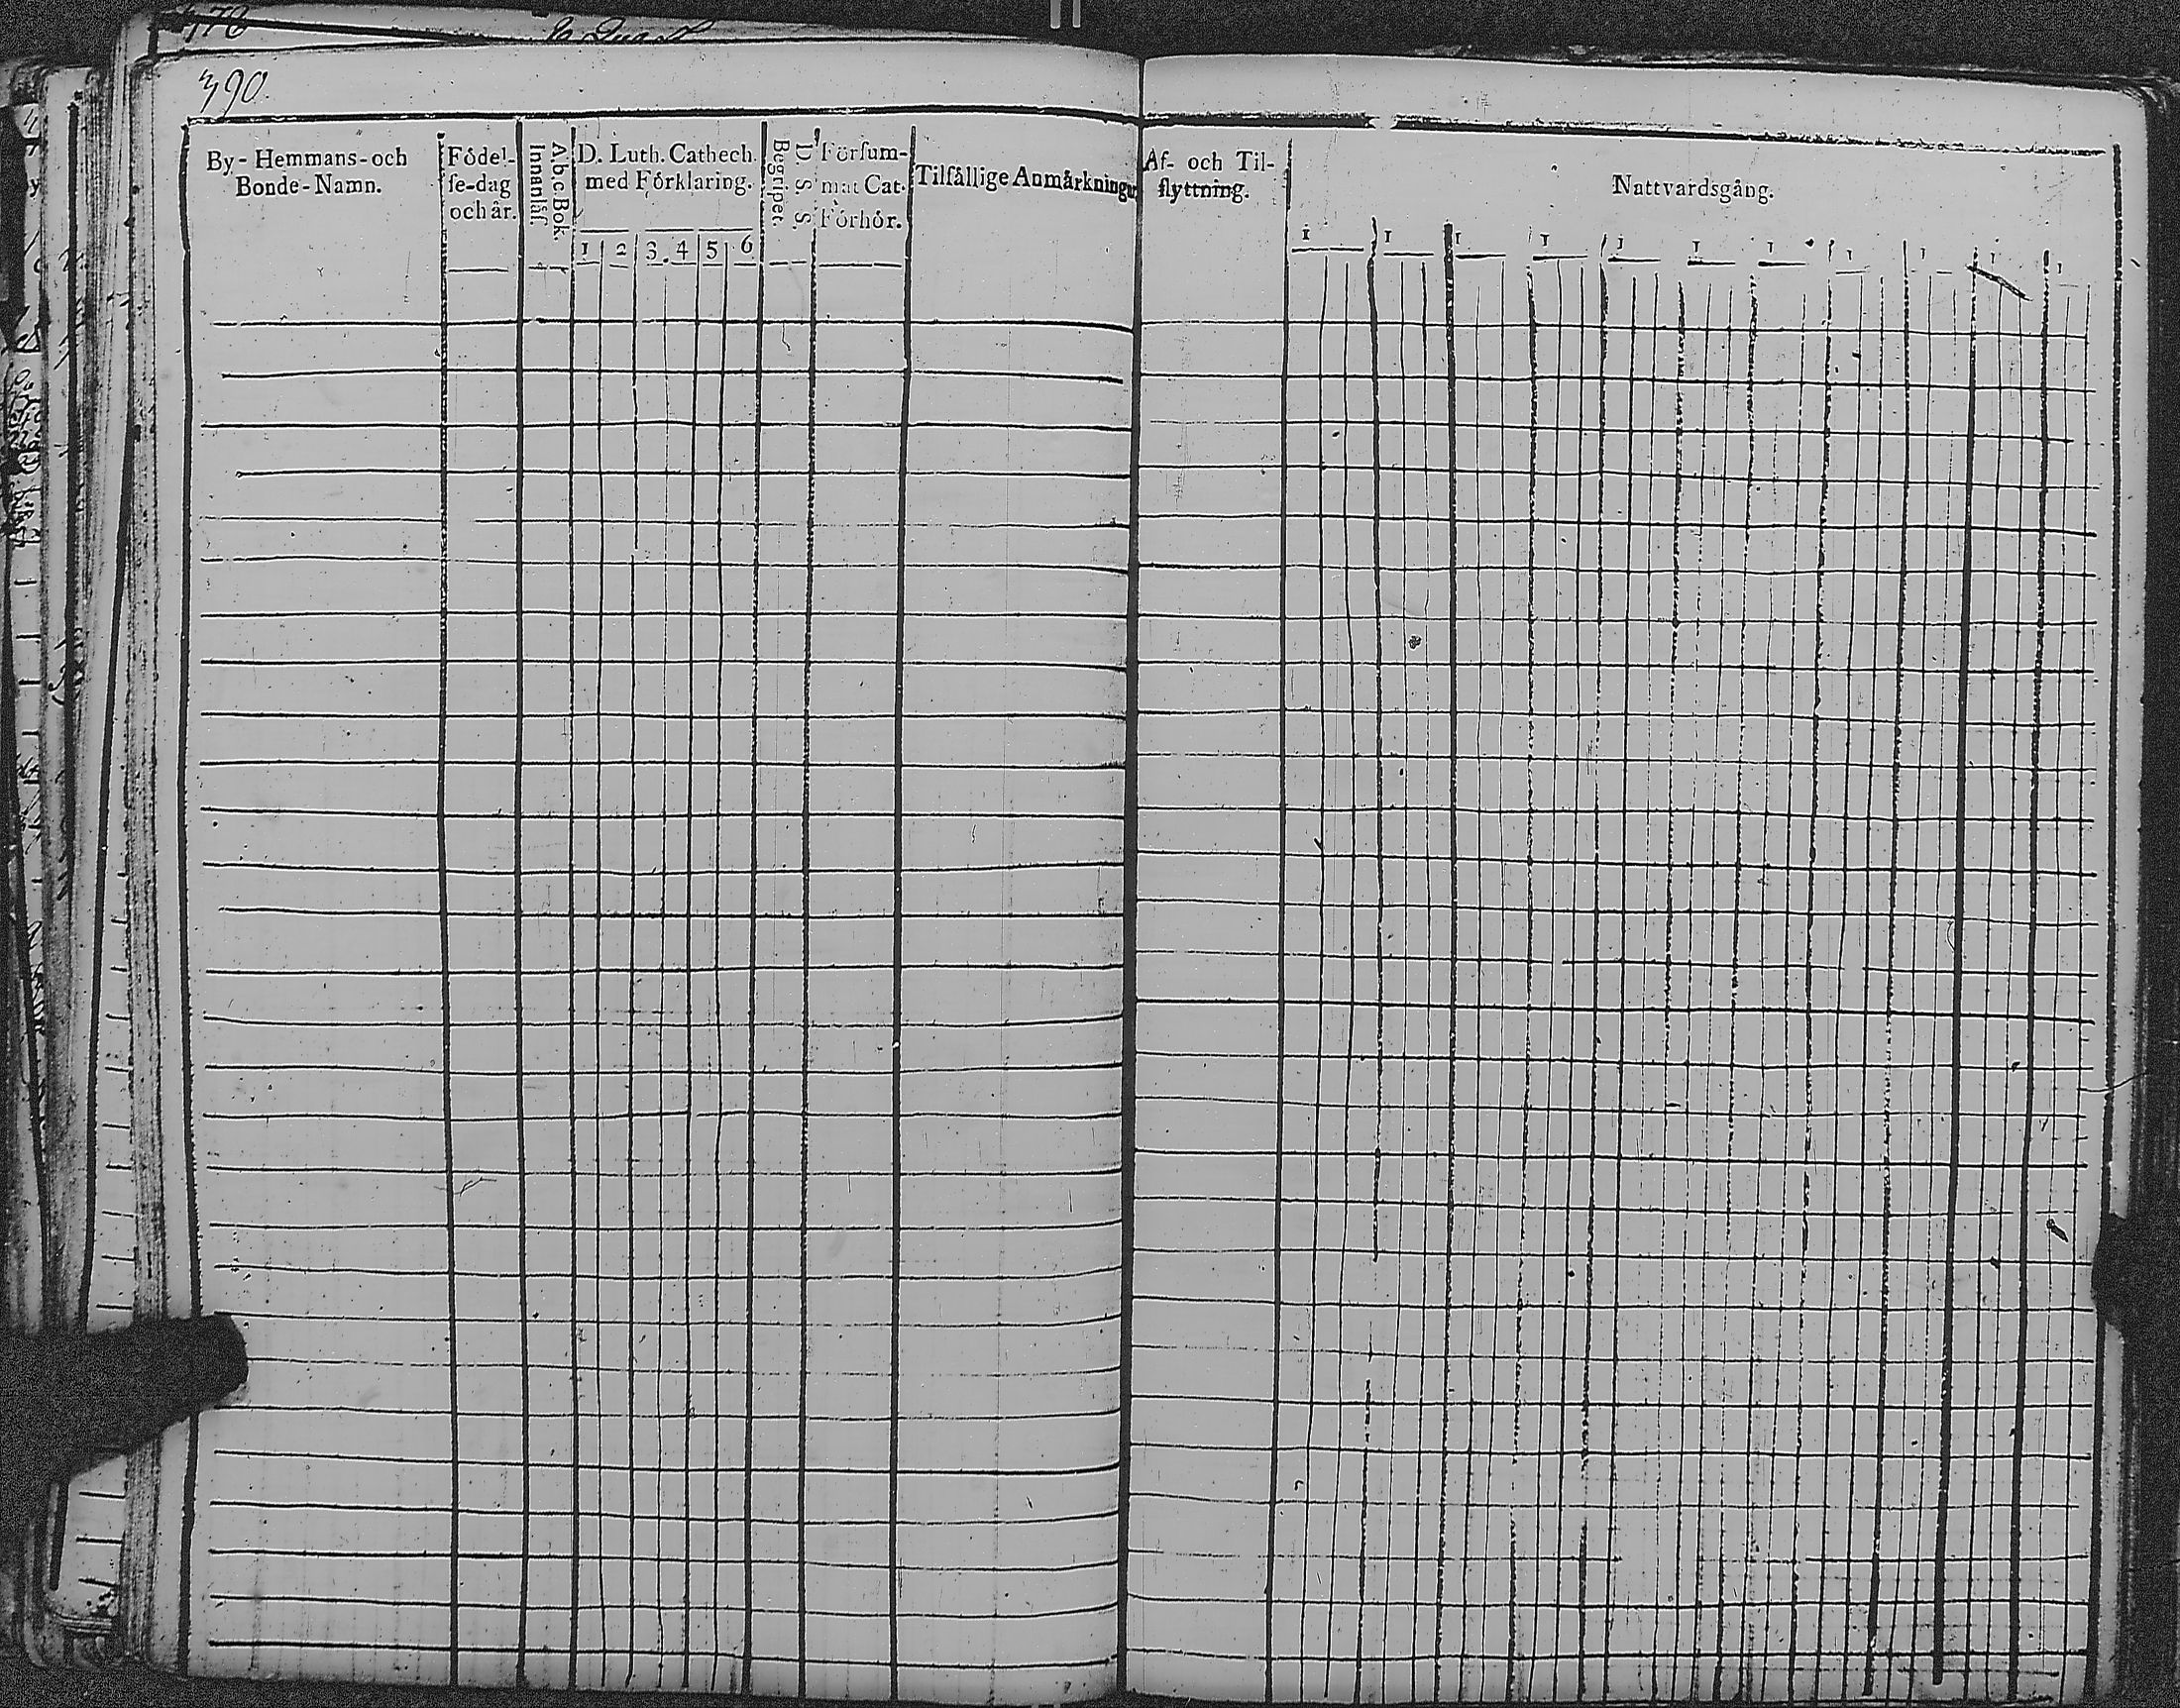 390.
By- Hemmans- och
Bonde-Namn.
Födel-
se-dag
och år.
A b c Bok.
Innanläsſ.
D. Luth. Cathech.
med Förklaring.
1 2 3 4 5 6
Begripet.
D. S. S.
Förſum-
mat Cat.
Förhör.
Tilfällige Anmärkningar
Af- och Til-
flyttning.
Nattvardsgång.
1 1 1 1 1 1 1 1 1 1 1